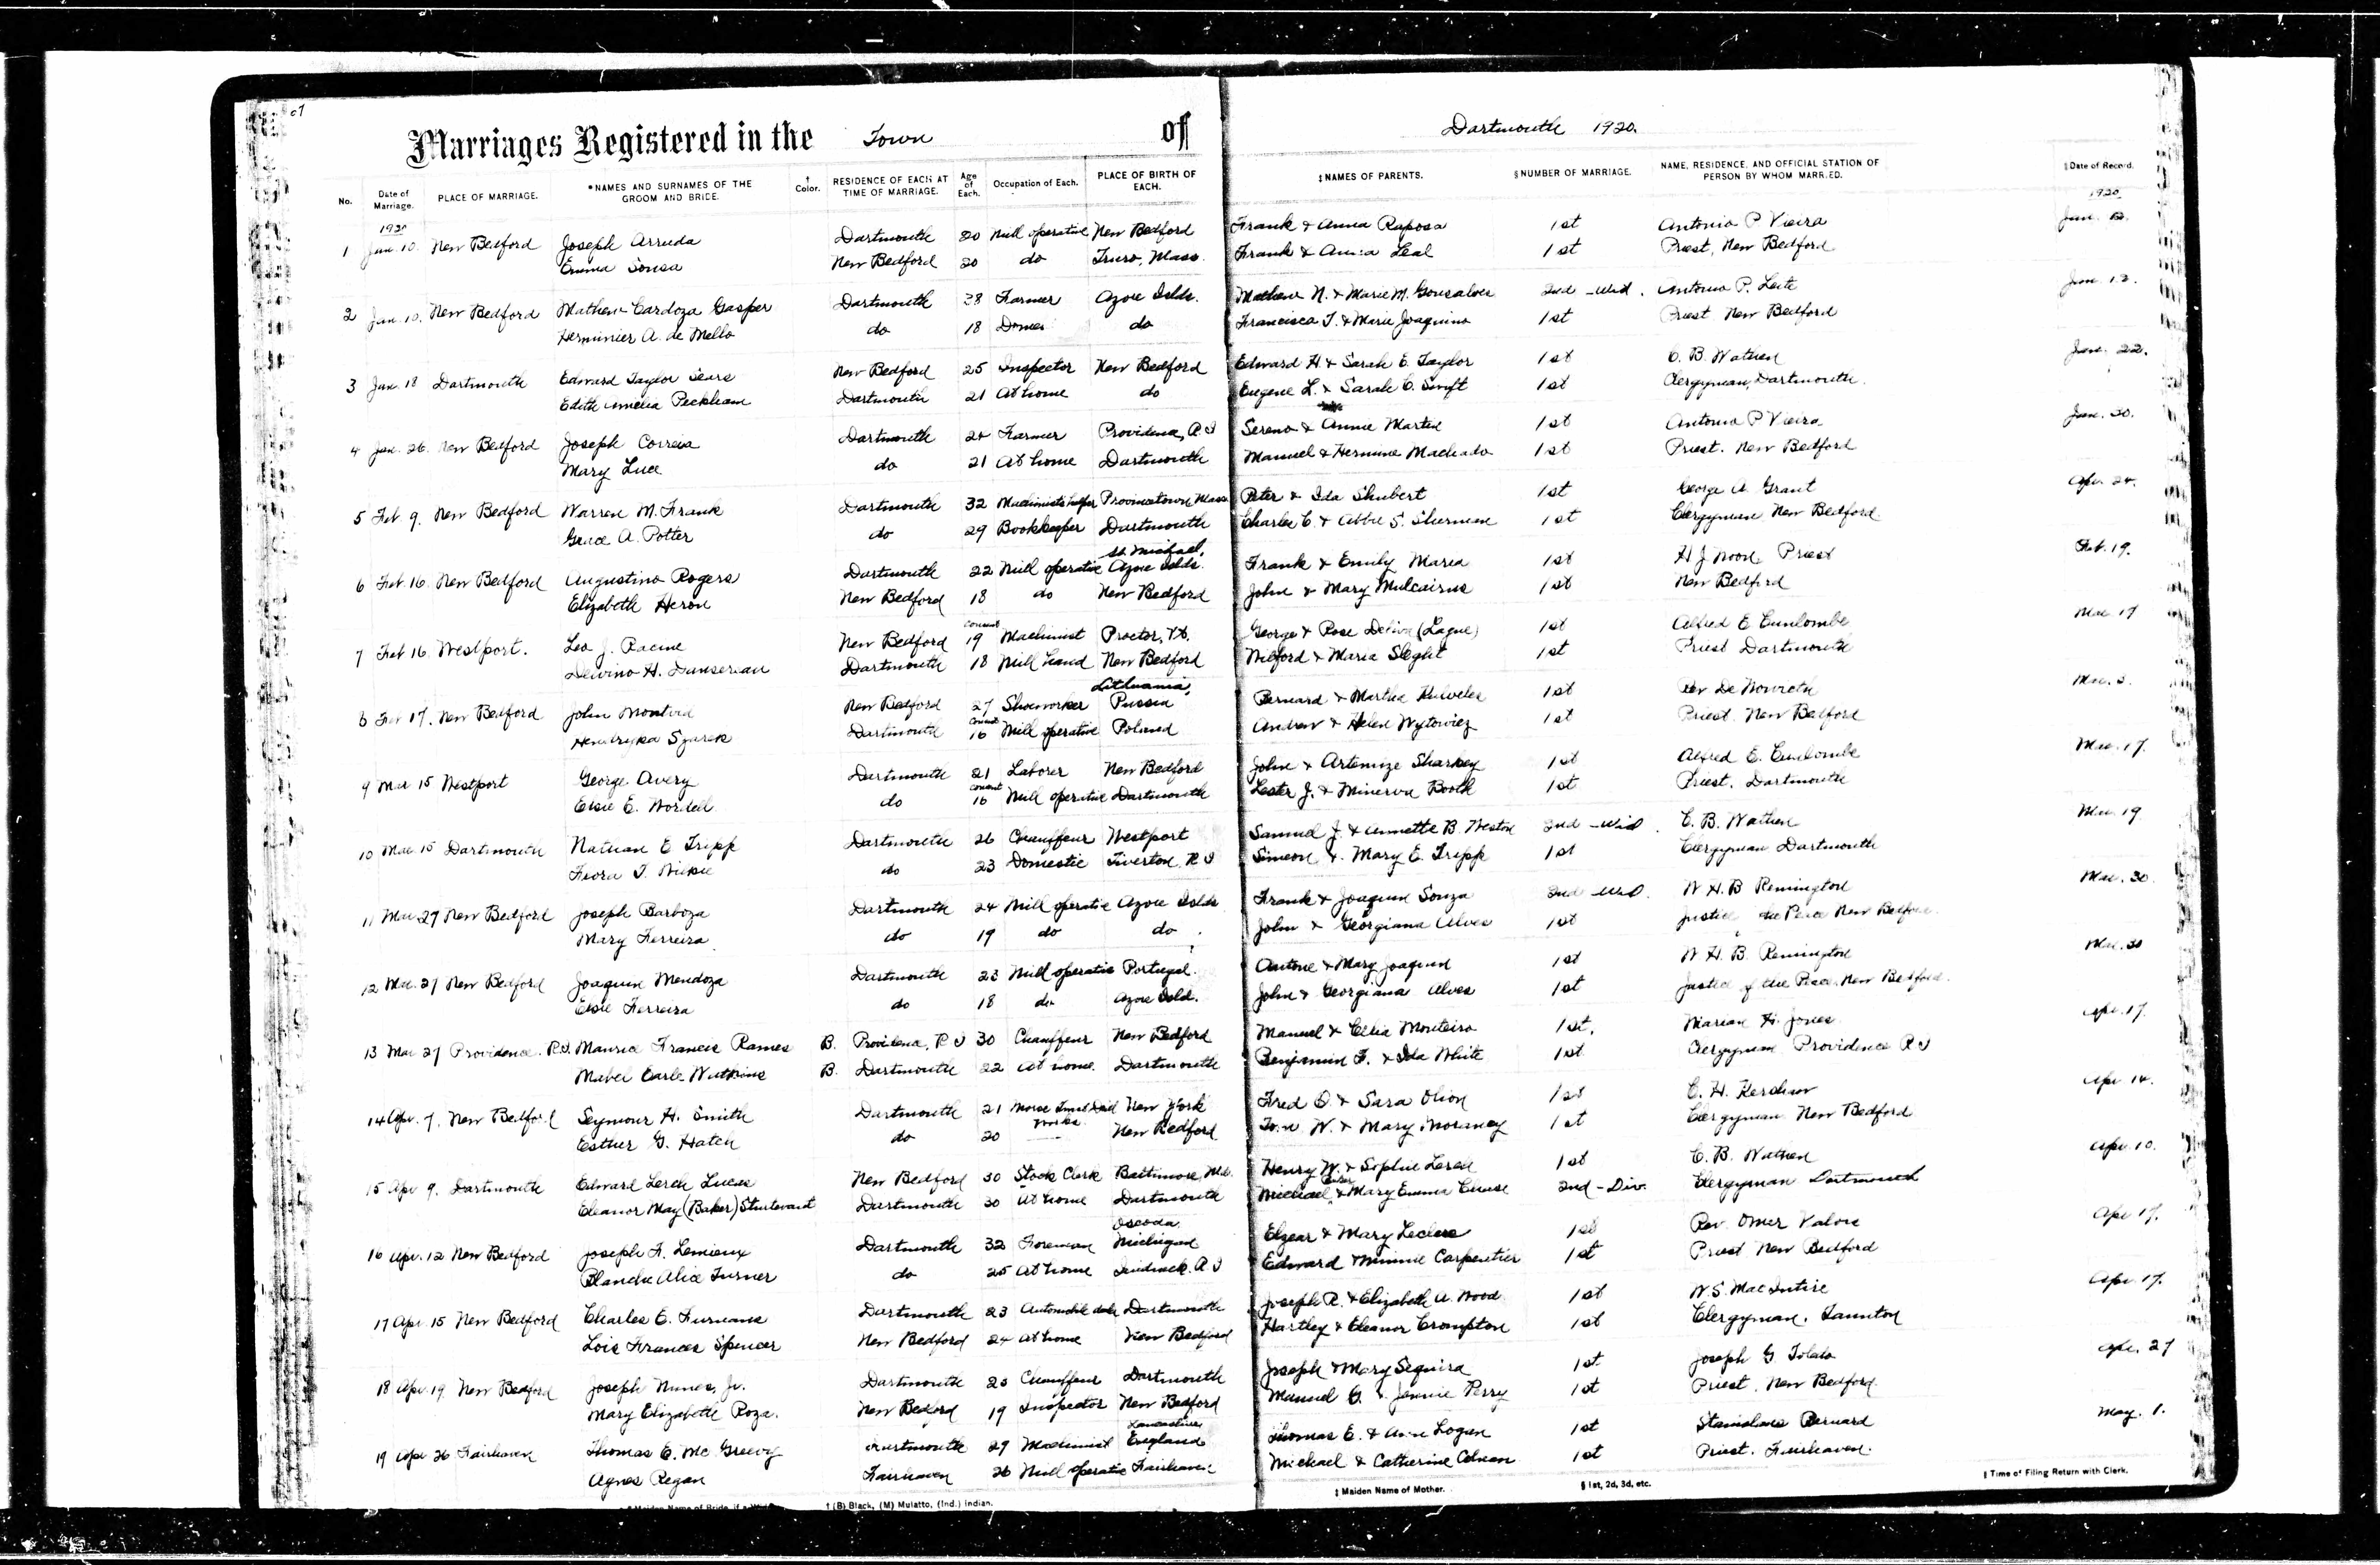 Marriages Registered in the Town of Dartmouth 1920.
No. Date of Marriage. PLACE OF MARRIAGE. *NAMES AND SURNAMES OF THE GROOM AND BRIDE. † Color. RESIDENCE OF EACH AT TIME OF MARRIAGE. Age of Each. Occupation of Each. PLACE OF BIRTH OF EACH. ‡NAMES OF PARENTS. §NUMBER OF MARRIAGE. NAME, RESIDENCE, AND OFFICIAL STATION OF PERSON BY WHOM MARRIED. ‖Date of Record.
1920 1920
1 Jan. 10. New Bedford Joseph Arruda Dartmouth 20 Mill operative New Bedford Frank & Anna Raposa 1st Antonio P. Vieira Jan.
Emma Sousa New Bedford 20 do Truro, Mass. Frank & Anna Leal 1st Priest, New Bedford
2 Jan. 10. New Bedford Mathew Cardoza Gasper Dartmouth 28 Farmer Azore Islds. Mathew N. & Marie M. Gonsalves 2nd - Wid. Antonio P. Leite Jan. 12.
Herminier A. de Mello do 18 do Francisca T. & Marie Joaquino 1st Priest New Bedford
3 Jan. 18 Dartmouth Edward Taylor Sears New Bedford 25 Inspector New Bedford Edward H. & Sarah E. Taylor 1st C. B. Wathen Jan. 22.
Edith Amelia Peckham Dartmouth 21 At home do Eugene L. & Sarah C. Swift 1st Clergyman, Dartmouth.
4 Jan. 26. New Bedford Joseph Correia Dartmouth 24 Farmer Providence, R I Sereno & Annie Martin 1st Antonio P Vieira Jan. 30.
Mary Luce do 21 At home Dartmouth Manuel & Hermine Machado 1st Priest. New Bedford
5 Feb 9. New Bedford Warren M. Frank Dartmouth 32 Machinists helper Provincetown Mass Peter & Ida Shubert 1st George A. Grant Apr. 24.
Grace A. Potter do 29 Bookkeeper Dartmouth Charles C. & Abbie S. Sherman 1st Clergyman New Bedford
St. Michael,
6 Feb 16. New Bedford Augustino Rogers Dartmouth 22 Mill operative Azore Islds. Frank & Emily Maria 1st H J Noon Priest Feb. 19.
Elizabeth Heron New Bedford 18 do New Bedford John & Mary Mulcairns 1st New Bedford
consent
7 Feb 16. Westport. Leo J. Racine New Bedford 19 Machinist Proctor, Vt. George & Rose (Lague) 1st Alfred E. Mar 17
Delvino H. Dansereau Dartmouth 18 Mill hand New Bedford Wilford & Maria Sleght 1st Priest Dartmouth
Lithuania,
8 Feb 17. New Bedford John Montvid New Bedford 27 Shoeworker Russia Bernard & Martha 1st Rev Mar. 3.
consent
Hendryka Szarek Dartmouth 16 Mill operative Poland Andrew & Helen Wytowicz 1st Priest. New Bedford
9 Mar 15 Westport George Avery Dartmouth 21 Laborer New Bedford John & Artemize Sharkey 1st Alfred E. Mar. 17.
consent
Elsie E. Wordell do 16 Mill operative Dartmouth Lester J. & Minerva Booth 1st Priest. Dartmouth
10 Mar. 15 Dartmouth Nathan E. Tripp Dartmouth 26 Chauffeur Westport Samuel J. & Annette B. Weston 2nd - Wid. C. B. Wathen Mar. 19
Flora T. do 23 Domestic Tiverton, R I Simeon & Mary E. Tripp 1st Clergyman Dartmouth
11 Mar 27 New Bedford Joseph Barboza Dartmouth 24 Mill operative Azore Islds Frank & Joaquin Souza 2nd - Wid. W H. B Remington Mar. 30
Mary Ferreira do 19 do do John & Georgiana Alves 1st Justice the Peace New Bedford
12 Mar. 27 New Bedford Joaquin Mendoza Dartmouth 23 Mill operative Portugal. Antone & Mary Joaquin 1st W H. B. Remington Mar. 30
Elsie Ferreira do 18 do Azore Isld. John & Georgiana Alves 1st Justice of the Peace, New Bedford.
13 Mar 27 Providence. R.I. Maurice Francis Rames B. Providence, R I 30 Chauffeur New Bedford Manuel & Celia Monteiro 1st. Marian H. Jones Apr. 17.
Mabel Earle Watkins B. Dartmouth 22 At home. Dartmouth Benjamin F. & Ida White 1st Clergyman Providence R I
14 Apr. 7. New Bedford Seymour H. Smith Dartmouth 21 Morse Twist Drill New York Fred O. & Sara Olson 1st C. H. Apr 14.
works
Esther G. Hatch do 20 New Bedford W. & Mary 1st Clergyman New Bedford
15 Apr 9. Dartmouth Edward Lerch Lucas New Bedford 30 Stock Clerk Baltimore, Md. Henry W. & Sophie Lerch 1st C. B. Wathen Apr. 10.
Eleanor May (Baker) Sturtevant Dartmouth 30 At home Dartmouth Michael & Mary Emma Chase 2nd - Div. Clergyman Dartmouth
Oscoda
16 Apr. 12 New Bedford Joseph F. Lemieux Dartmouth 32 Foreman Michigan Elzear & Mary Leclere 1st Rev. Omer Valois Apr 17.
Blanche Alice Turner do 25 At home R I Edward & Minnie Carpentier 1st Priest New Bedford
17 Apr. 15 New Bedford Charles E. Furnans Dartmouth 23 Automobile Dartmouth Joseph R. & Elizabeth A. Wood 1st W. S. MacIntire Apr. 17.
Lois Frances Spencer New Bedford 24 At home New Bedford Hartley & Eleanor Crompton 1st Clergyman. Taunton
18 Apr. 19. New Bedford Joseph Nunes, Jr. Dartmouth Chauffeur Dartmouth Joseph & Mary Sequira 1st Joseph G Toledo Apr. 27
Mary Elizabeth Roza. New Bedford 19 Inspector New Bedford Manuel G. & Jennie Perry 1st Priest. New Bedford.
Lancashire
19 Apr 26 Fairhaven Thomas E. Mc Greevy Dartmouth 29 Machinist England Thomas E. & Ann Logan 1st Stanislaus Bernard May. 1.
Agnes Regan Fairhaven 26 Mill operative Fairhaven Michael & Catherine 1st Priest. Fairhaven.
† (B) Black, (M) Mulatto, (Ind.) Indian. ‡ Maiden Name of Mother. § 1st, 2d, 3d, etc. ‖ Time of Filing Return with Clerk.